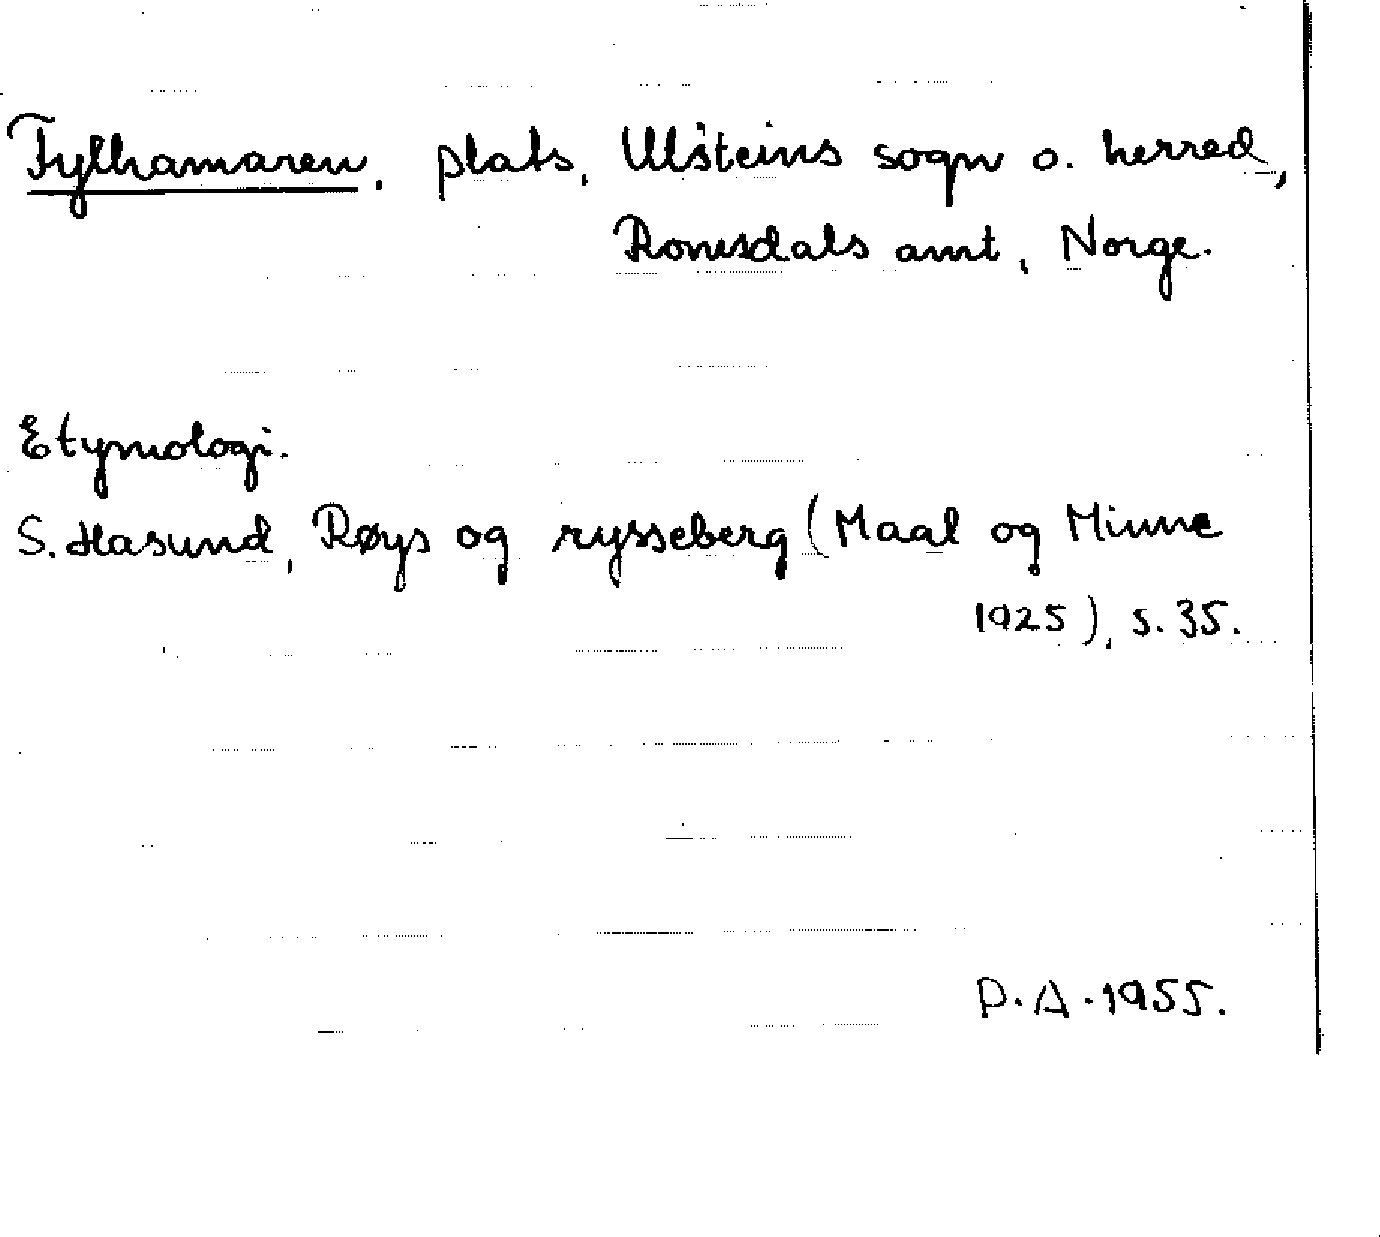 Fylhamaren, plats, Ulsteins sogn o. herred,
Romsdals amt, Norge.
Etymologi.
S. Hasund, Røys og rysseberg (Maal og Minne
1925), s. 35.
D.A. 1955.